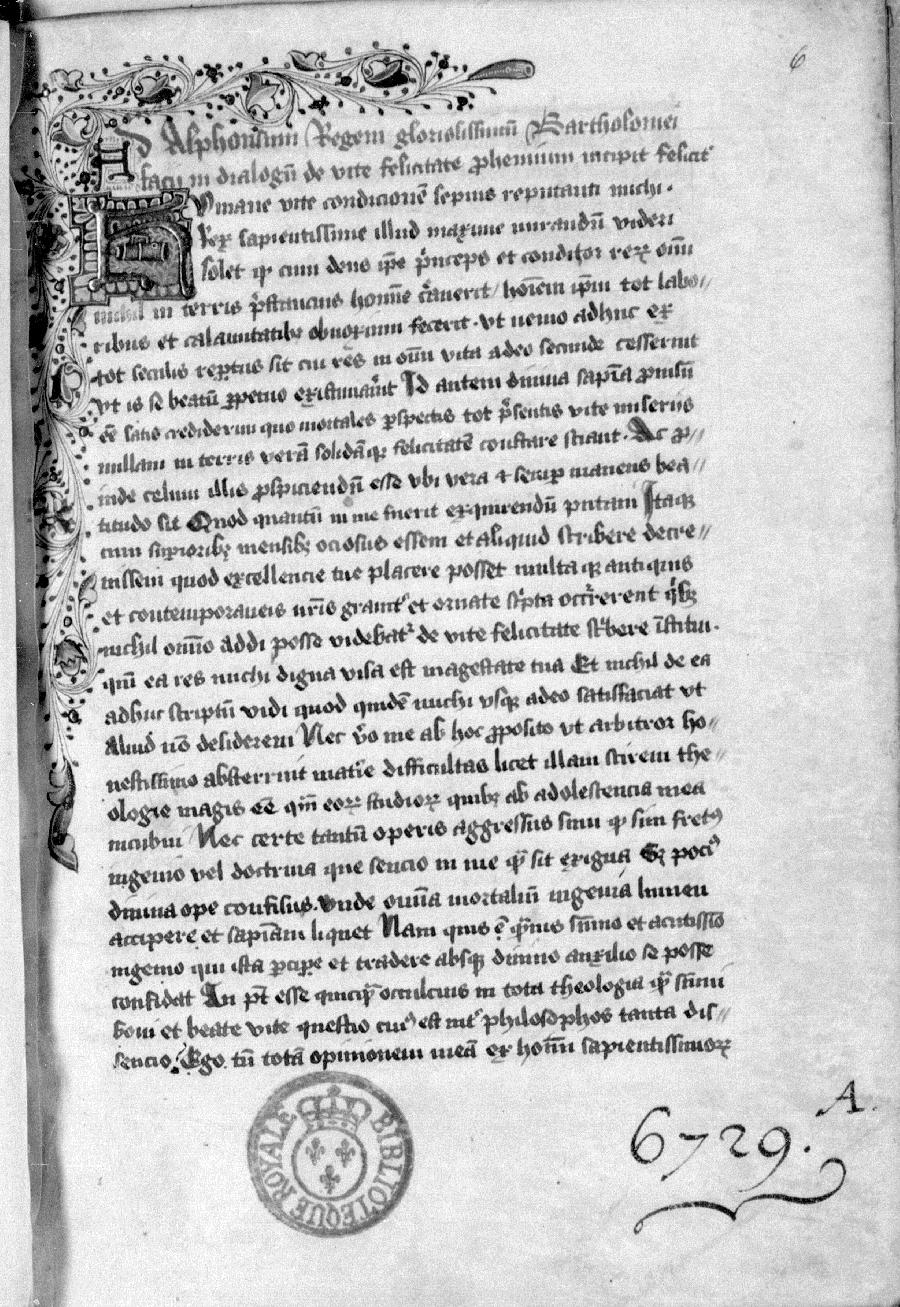 6
Ad Alphonsum Regem gloriosissimū Bartholomei
facij in dialogū de vite felicitate prohemium incipit felicit̾
Humane vite condicionē sepius reputanti michi.
Rex sapientissime illud maxime mirandū videri
solet qꝫ cum deus ip̄e p̃nceps et conditor reꝝ om̄i
nichil in terris p̃stancius homīe c̃averit/ hoīem ip̄m tot labo//
ribus et calamitatibꝫ obnoxium fecerit. vt nemo adhuc ex
tot seculis rep̱tus sit cui res in om̄i vita adeo secunde cesserint
vt is se beatū ꝑpetuo existimav̾it Id autem divina sapīa provisū
eē satis crediderim quo mortales ꝑspectis tot p̃sentis vite miseriis
nullam in terris verā solidāqꝫ felicitatē constare sciant. Ac ꝓ//
inde celum illis ꝓspiciendū esse vbi vera et semꝑ manens bea//
titudo sit Quod quantū in me fuerit exquirendū putavi Itaqꝫ
cum suꝑioribꝫ mensibꝫ ociosus essem et aliquid scribere decre//
vissem quod excellencie tue placere posset multa qꝫ antiquis
et contemporaneis nr̄is gravit̾ et ornate sc̃pta occr̃rerent qb̃ꝫ
nichil om̄io addi posse videbat᷑ de vite felicitate sc̃bere īstitui.
qm̄ ea res michi digna visa est magestate tua Et nichil de ea
adhuc scriptū vidi quod quidē michi vsqꝫ adeo satisfaciat vt
aliud nō desiderem Nec v̾o me ab hoc ꝓposito vt arbitror ho//
nestissimo absterruit mat̾ie difficultas licet illam scirem the//
ologie magis eē qm̄ eoꝝ studioꝝ quibꝫ ab adolescencia mea
incubui Nec certe tantū operis aggressus sum qꝫ sim fretꝰ
ingenio vel doctrina que sencio in me qꝫ̃ sit exigua Sꝫ pociꝰ
divina ope confisus. vnde om̄ia mortaliū ingenia lumen
accipere et sapīam liquet Nam quis ē q̃vis sūmo et acutissīo
ingenio qui ista ꝑcipe et tradere absqꝫ divino auxilio se posse
confidat An pt̄ esse quicq̃ occulcius in tota theologia q̃ sūmi
boni et beate vite questio cuiꝰ est int̾ philosophos tanta dis//
sencio. Ego tn̄ totā opinionem meā ex hoīm sapientissimoꝝ
BIBLIOTEQUE ROYALE
6729. A.